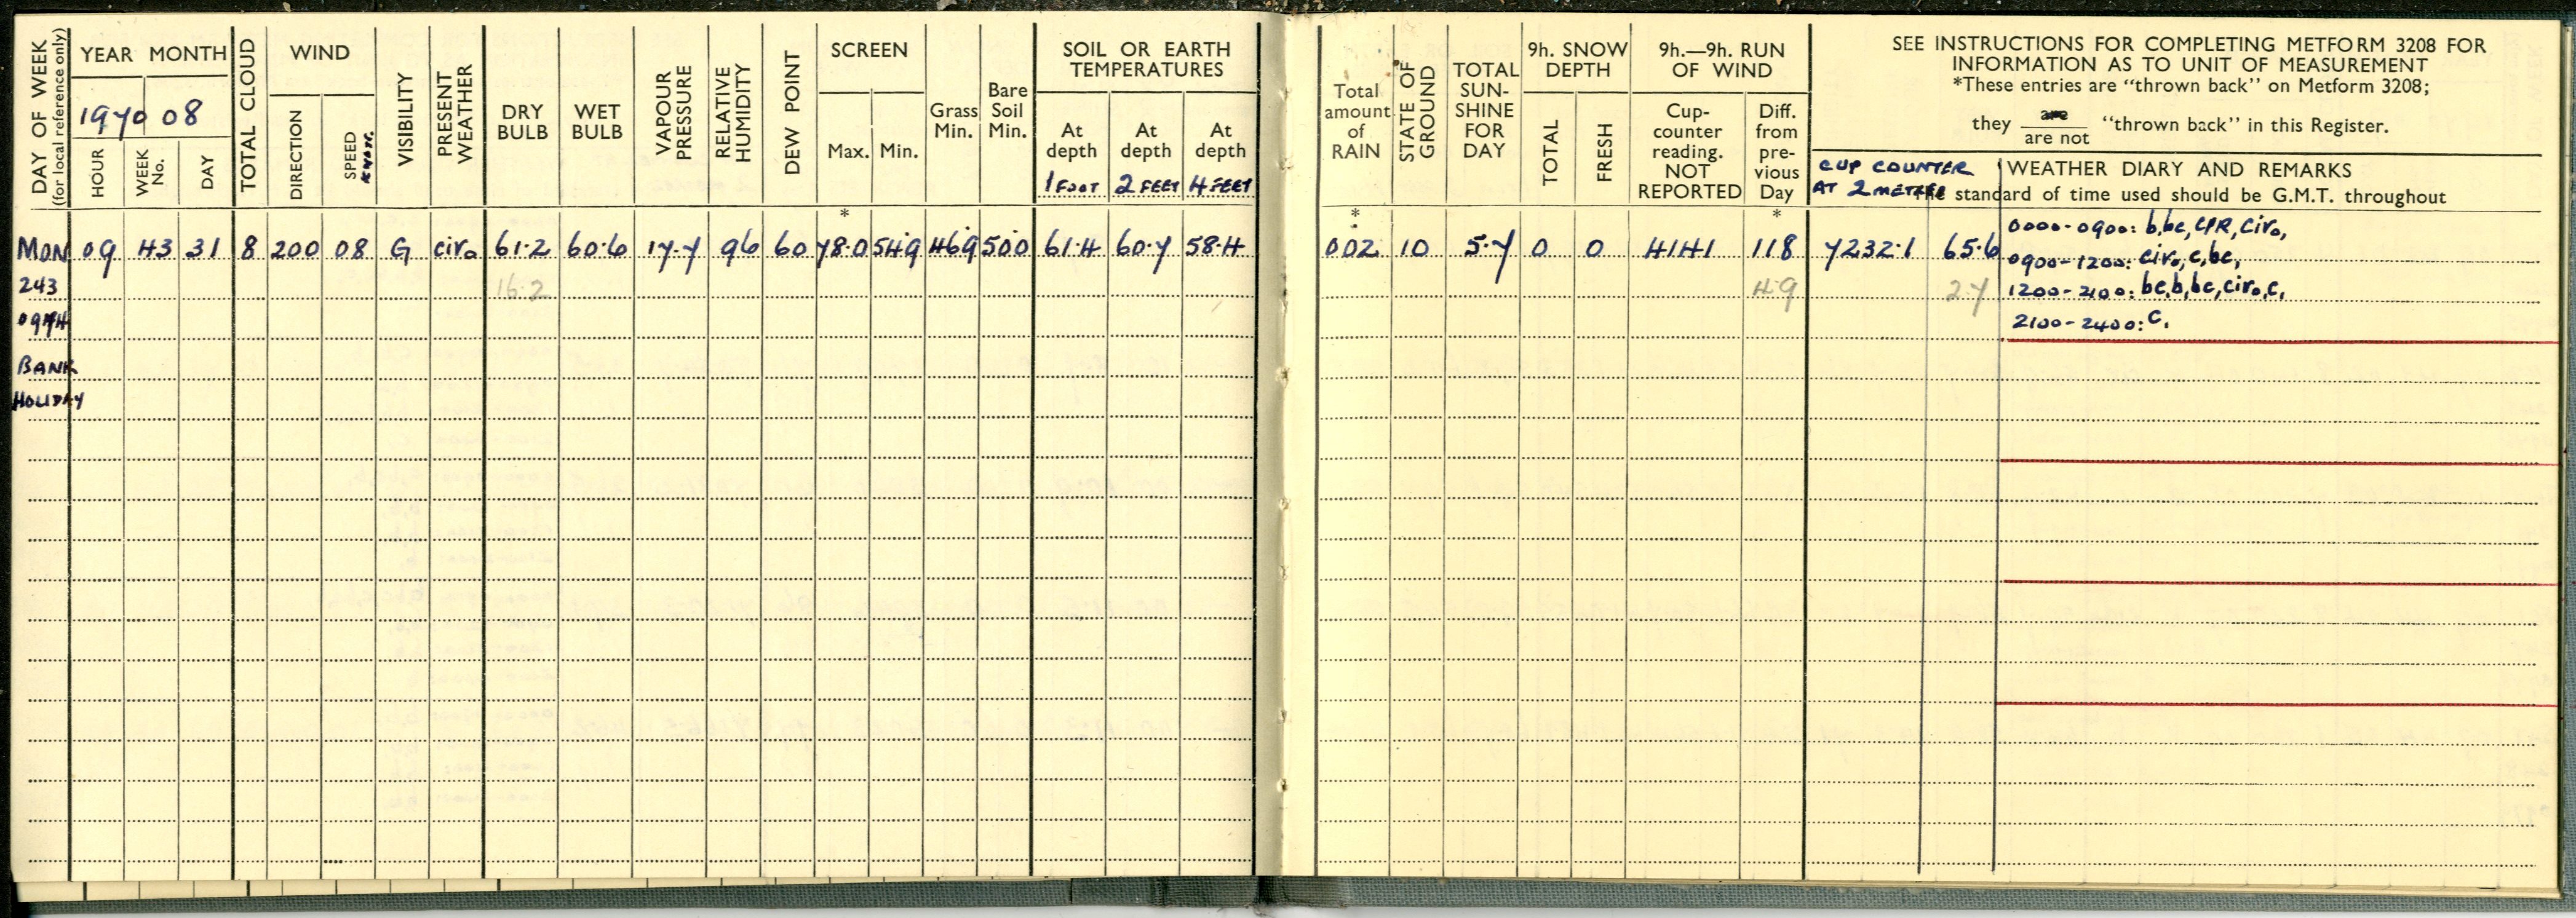 DAY OF WEEK
(for local reference only)
YEAR MONTH
1970 08
HOUR
WEEK No.
DAY
TOTAL CLOUD
WIND
DIRECTION
SPEED
KNOTS.
VISIBILITY
PRESENT WEATHER
DRY BULB
WET BULB
VAPOUR PRESSURE
RELATIVE HUMIDITY
DEW POINT
SCREEN
Max. Min.
Grass Min.
Bare Soil Min.
SOIL OR EARTH TEMPERATURES
At depth 1 FOOT
At depth 2 FEET
At depth 4 FEET
Total amount of RAIN
STATE OF GROUND
TOTAL SUN-SHINE FOR DAY
9h. SNOW DEPTH
TOTAL
FRESH
9h.—9h. RUN OF WIND
Cup-counter reading. NOT REPORTED
Diff. from pre-vious Day
SEE INSTRUCTIONS FOR COMPLETING METFORM 3208 FOR
INFORMATION AS TO UNIT OF MEASUREMENT
*These entries are “thrown back” on Metform 3208;
they are / are not “thrown back” in this Register.
CUP COUNTER
AT 2 METRE
WEATHER DIARY AND REMARKS
standard of time used should be G.M.T. throughout
* * *
MON 09 43 31 8 200 08 G ciro 61.2 60.6 17.7 96 60 78.0 54.9 46.9 50.0 61.4 60.7 58.4 002 10 5.7 0 0 4141 118 7232.1 65.6
0000-0900: b,bc, CPR, ciro,
0900-1200: ciro, c,bc,
243 16.2 4.9 2.7 1200-2100: bc,b,bc,ciro,c,
097H
2100-2400: c,
BANK
HOLIDAY